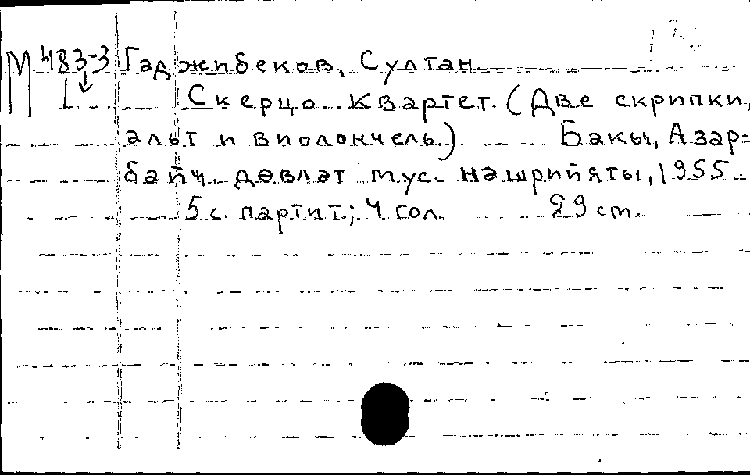 М 483-3 Гаджибеков, Султан.
Скерцо. Квартет. (Две скрипки,
альт и виолончель.) Бакы, Азәр-
байч. дөвләт мус. нәшрийяты, 1955.
5 с. партит.; 4 гол. 29 cm.